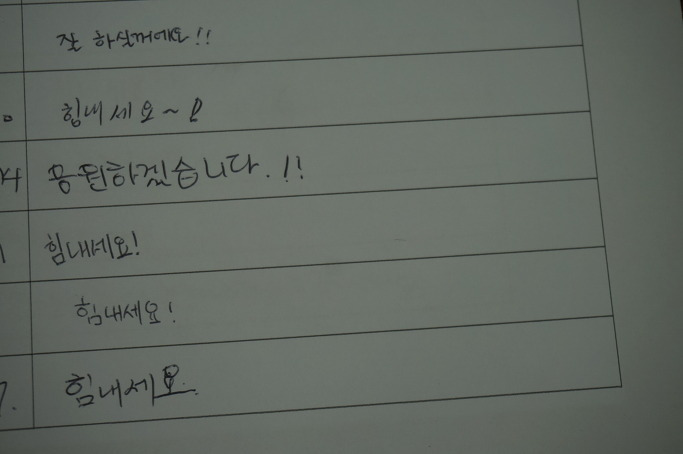 잘 하실꺼에요!!
힘내세요~!
응원하겠습니다.!!
힘내세요!
힘내세요!
힘내세요.